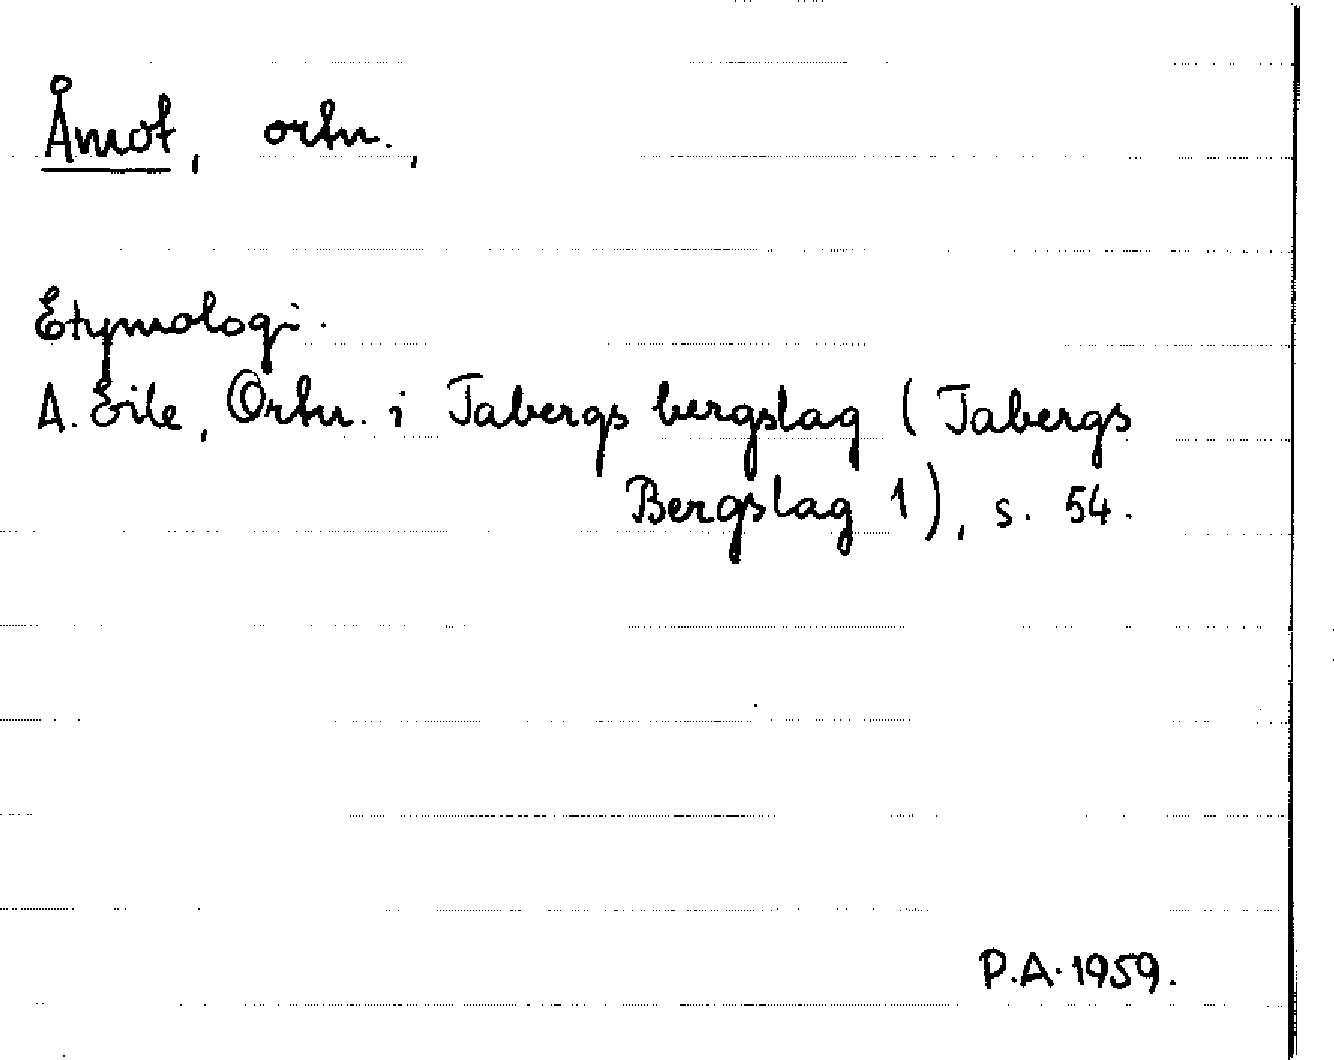 Åmot, ortn.,
Etymologi.
A. Eile, Ortn. i Tabergs bergslag (Tabergs
Bergslag 1), s. 54.
P.A. 1959.